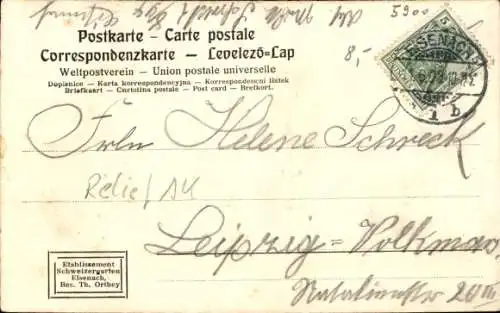 5900
8,-
Postkarte - Carte postale
Correspondenzkarte - Levelező-Lap
Weltpostverein - Union postale universelle
Dopisnice - Karta korrespondencyjna - Korespondenční lístek
Briefkaart - Cartolina postale - Post card - Brefkort.
5
EISENACH
1 b
Frln Helene Schreck
Relief AK
Leipzig = Volkmar
20 III
Etablissement
Schweizergarten
Eisenach,
Bes. Th. Orthey